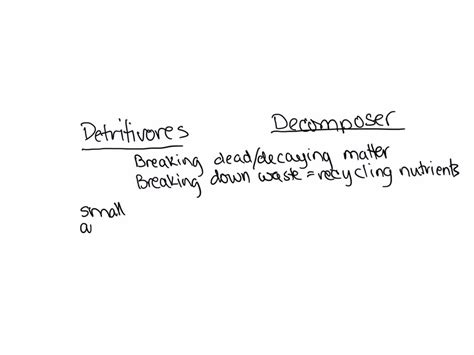 Detritivores Decomposer
Breaking dead/decaying matter
Breaking down waste = recycling nutrients
small
a